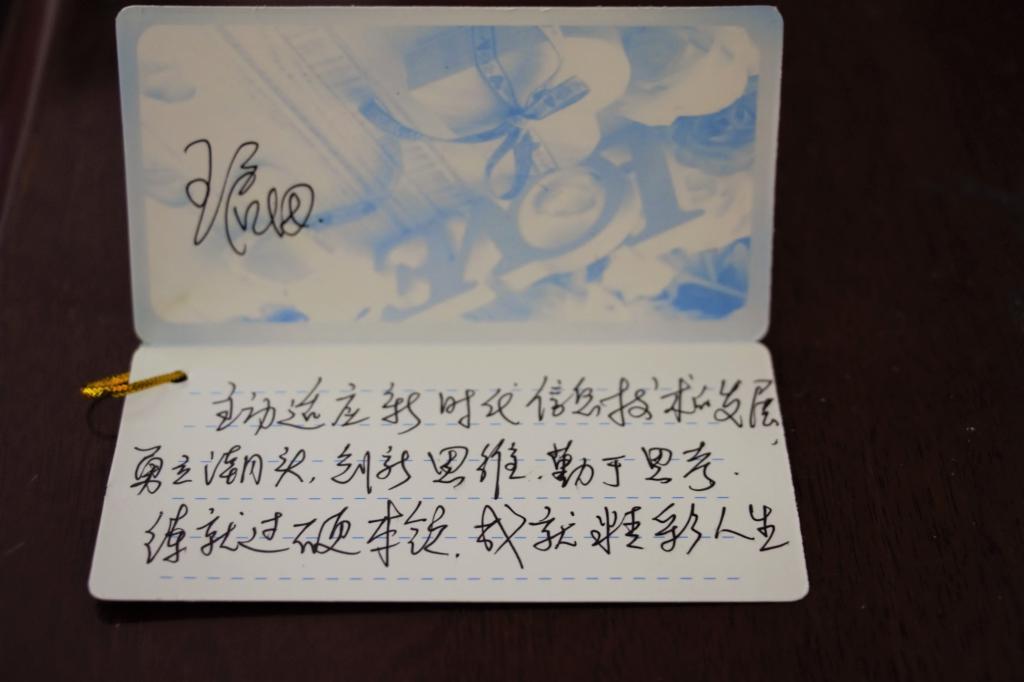 LOVE
主动适应新时代信息技术的发展,
勇立潮头,创新思维,勤于思考.
练就过硬本领,成就精彩人生